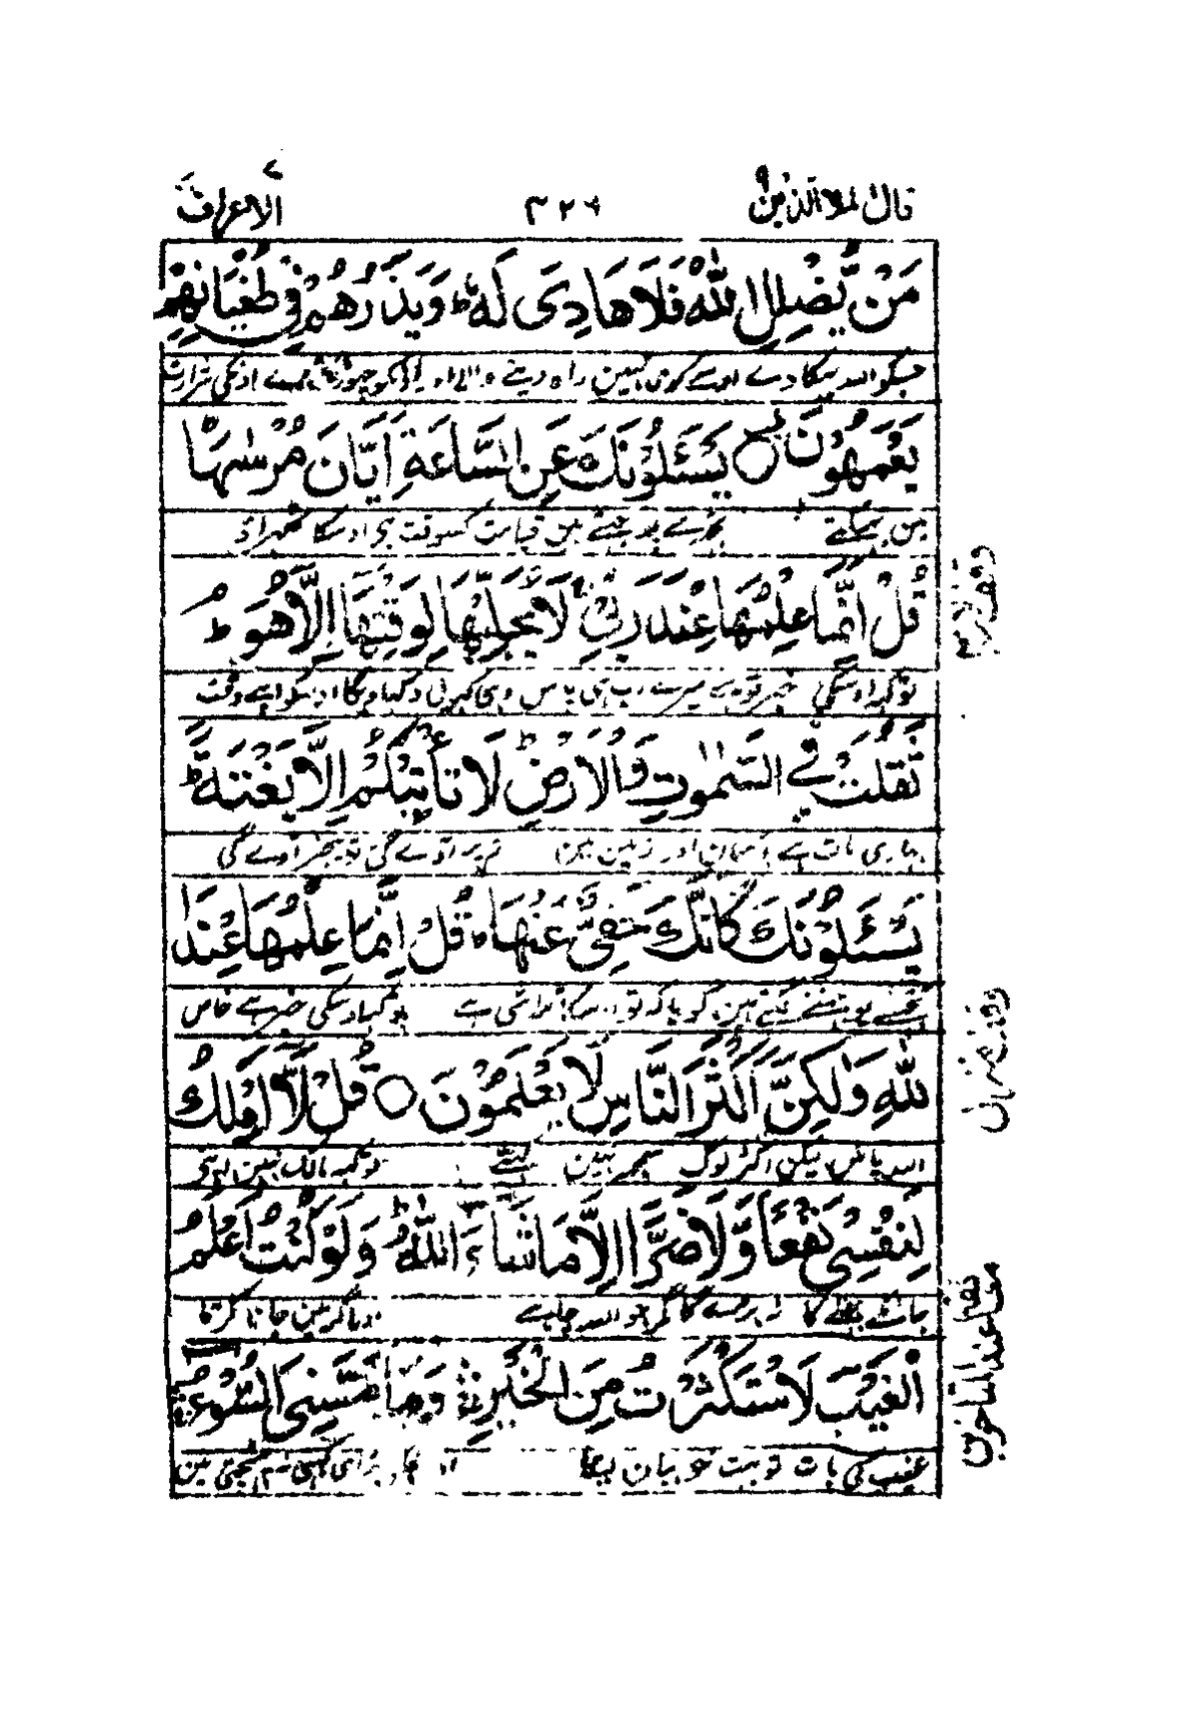 قال الملأ الذين ٩
٣٢٦
الاعراف ٧
مَنْ يُّضْلِلِ اللّٰهُ فَلَا هَادِیَ لَهٗ ؕ وَيَذَرُهُمْ فِيْ طُغْيَانِهِمْ
جسکو اللہ بہکا دے اوسے کوئی نہین راہ دینے والا اور اونکو اونکی شرارت
يَعْمَهُوْنَ ○ يَسْـَٔلُوْنَكَ عَنِ السَّاعَةِ اَيَّانَ مُرْسٰىهَا ؕ
مین بہکتے تجھسے پوچھتے ہین قیامت کسوقت ہی اوسکا ٹھہراؤ
قُلْ اِنَّمَا عِلْمُهَا عِنْدَ رَبِّيْ ۚ لَا يُجَلِّيْهَا لِوَقْتِهَاۤ اِلَّا هُوَ ؕ
تو کہہ اوسکی خبر تو ہے میرے رب ہی پاس وہی کھول دکھاویگا اوسکو اوسکے وقت
ثَقُلَتْ فِي السَّمٰوٰتِ وَالْاَرْضِ ؕ لَا تَأْتِيْكُمْ اِلَّا بَغْتَةً ؕ
بھاری بات ہے آسمان اور زمین مین تم پر آوے گی تو بیخبر آوے گی
يَسْـَٔلُوْنَكَ كَاَنَّكَ حَفِيٌّ عَنْهَا ؕ قُلْ اِنَّمَا عِلْمُهَا عِنْدَ
تجھسے پوچھنے لگتے ہین گویا کہ تو اوسکا تلاشی ہے تو کہہ اوسکی خبر ہے خاص
اللّٰهِ وَلٰكِنَّ اَكْثَرَ النَّاسِ لَا يَعْلَمُوْنَ ○ قُلْ لَّاۤ اَمْلِكُ
اللہ پاس لیکن اکثر لوگ سمجھ نہین رکھتے تو کہہ مالک نہین
لِنَفْسِيْ نَفْعًا وَّلَا ضَرًّا اِلَّا مَا شَآءَ اللّٰهُ ؕ وَلَوْ كُنْتُ اَعْلَمُ
جان کے بھلے کا نہ برے کا مگر جو اللہ چاہے اور اگر مین جانا کرتا
الْغَيْبَ لَاسْتَكْثَرْتُ مِنَ الْخَيْرِ ۛ وَمَا مَسَّنِيَ السُّوْٓءُ ۛ
غیب کی بات تو بہت خوبیان لیتا اور برائی کبھی نہ پہنچتی مین
معانقة عند المتاخرين